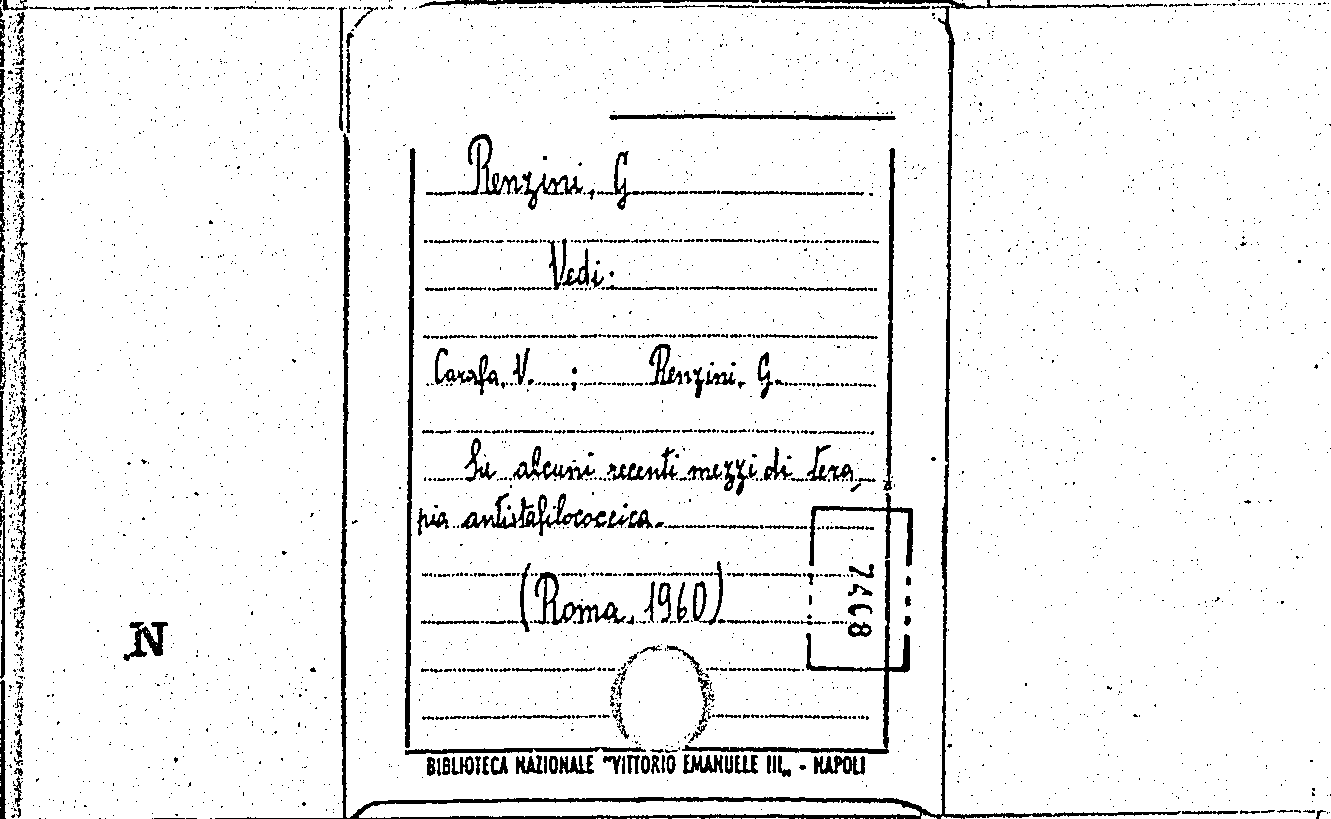 Renzini, G
Vedi:
Carafa, V. ; Renzini, G.
Su alcuni recenti mezzi di tera,
pia antistafilococcica.
(Roma, 1960)
N
BIBLIOTECA NAZIONALE "VITTORIO EMANUELE III„ - NAPOLI